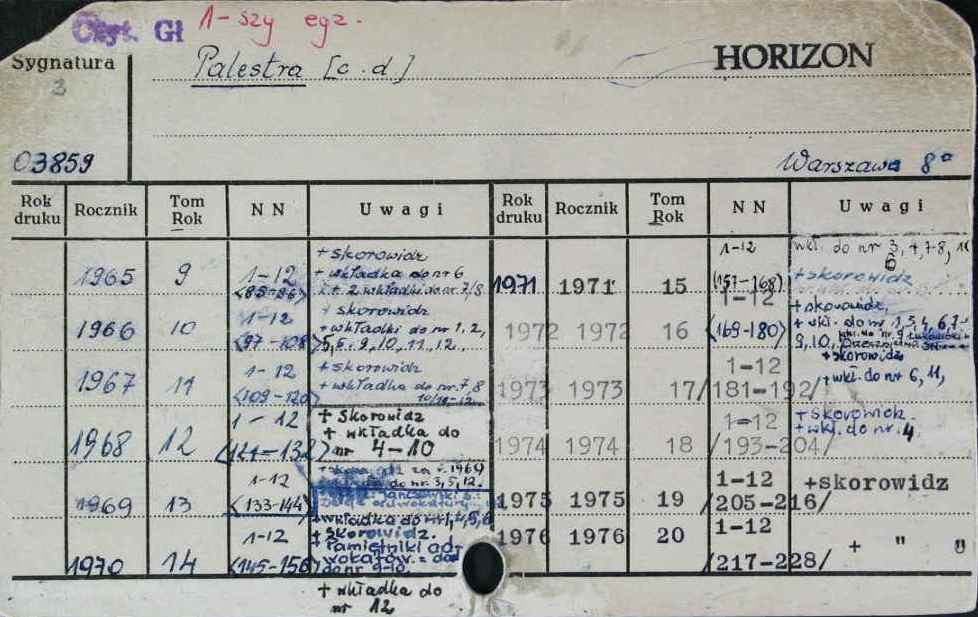 Czyt. Gł 1-szy egz.
Sygnatura
3
Palestra [c.d]
HORIZON
03859
Warszawa 8°
Rok druku Rocznik Tom Rok NN Uwagi Rok druku Rocznik Tom Rok NN Uwagi
1965 9 1-12 <85-96>
+ skorowidz
+ wkładka do nr 6
i + 2 wkładki do nr. 7/8
1966 10 1-12 <97-108>
+ skorowidz
+ wkładki do nr 1, 2,
5, 9, 10, 11, 12.
1967 11 1-12 <109-120>
+ skorowidz
+ wkładka do nr. 7, 8
1968 12 1-12 <121-132>
+ skorowidz
+ wkładka do
nr 4-10
1969 13 1-12 <133-144>
za r. 1969
do nr. 3, 5, 12.
1970 14 1-12 <145-156>
+ wkładka do nr 1, 4, 5, 6
+ skorowidz.
+ Pamiętniki ad-
wokatów = dod
do nr 9-10.
+ wkładka do
nr 12
1971 1971 15 1-12 (157-168)
wkł. do nr 3, 4, 7-8, 11
6
+ skorowidz
1972 1972 16 1-12 <169-180>
+ skorowidz,
+ wkł. do nr 1, 3, 4, 6, 7-
9, 10,
+ skorowidz
1973 1973 17 1-12 /181-192/
+ wkł. do nr 6, 11,
1974 1974 18 1-12 /193-204/
+ skorowidz.
+ wkł. do nr. 4
1975 1975 19 1-12 /205-216/ +skorowidz
1976 1976 20 1-12 /217-228/ + " "